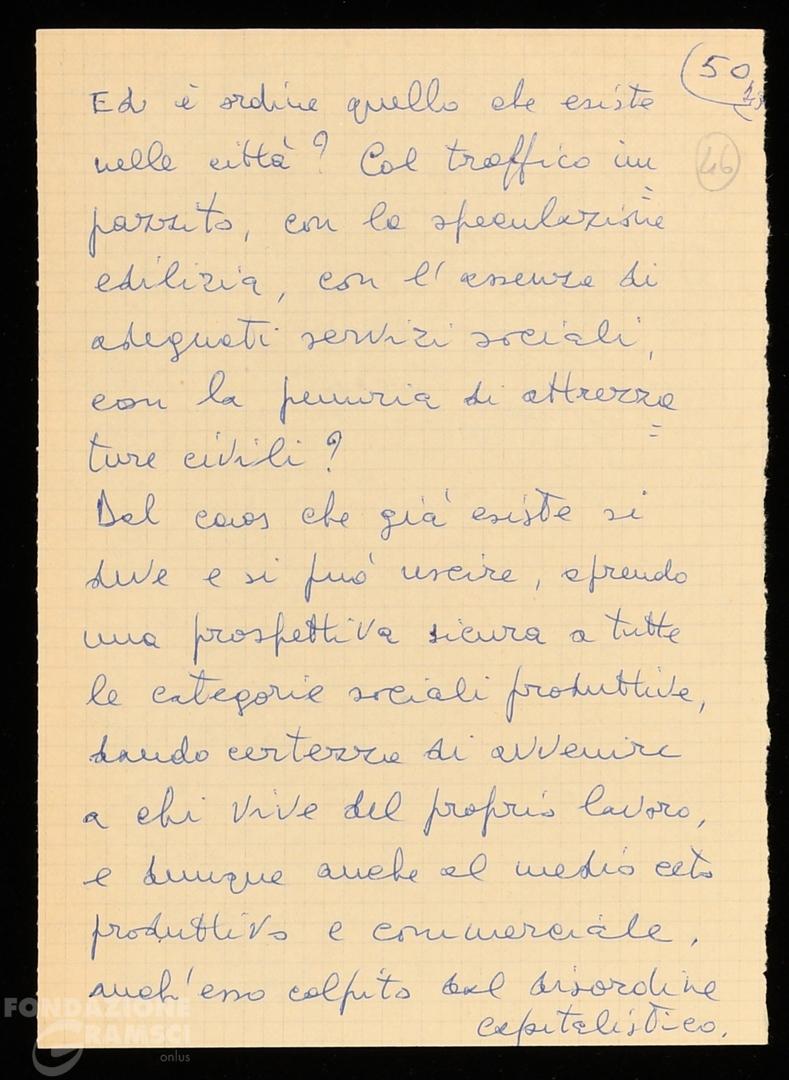 50
46
Ed è ordine quello che esiste
nelle città? Col traffico im
pazzito, con la speculazione
edilizia, con l'assenza di
adeguati servizi sociali,
con la penuria di attrezza
ture civili?
Dal caos che già esiste si
deve e si può uscire, aprendo
una prospettiva sicura a tutte
le categorie sociali produttive,
dando certezza di avvenire
a chi vive del proprio lavoro,
e dunque anche al medio ceto
produttivo e commerciale,
anch'esso colpito dal disordine
capitalistico.
FONDAZIONE
GRAMSCI
onlus